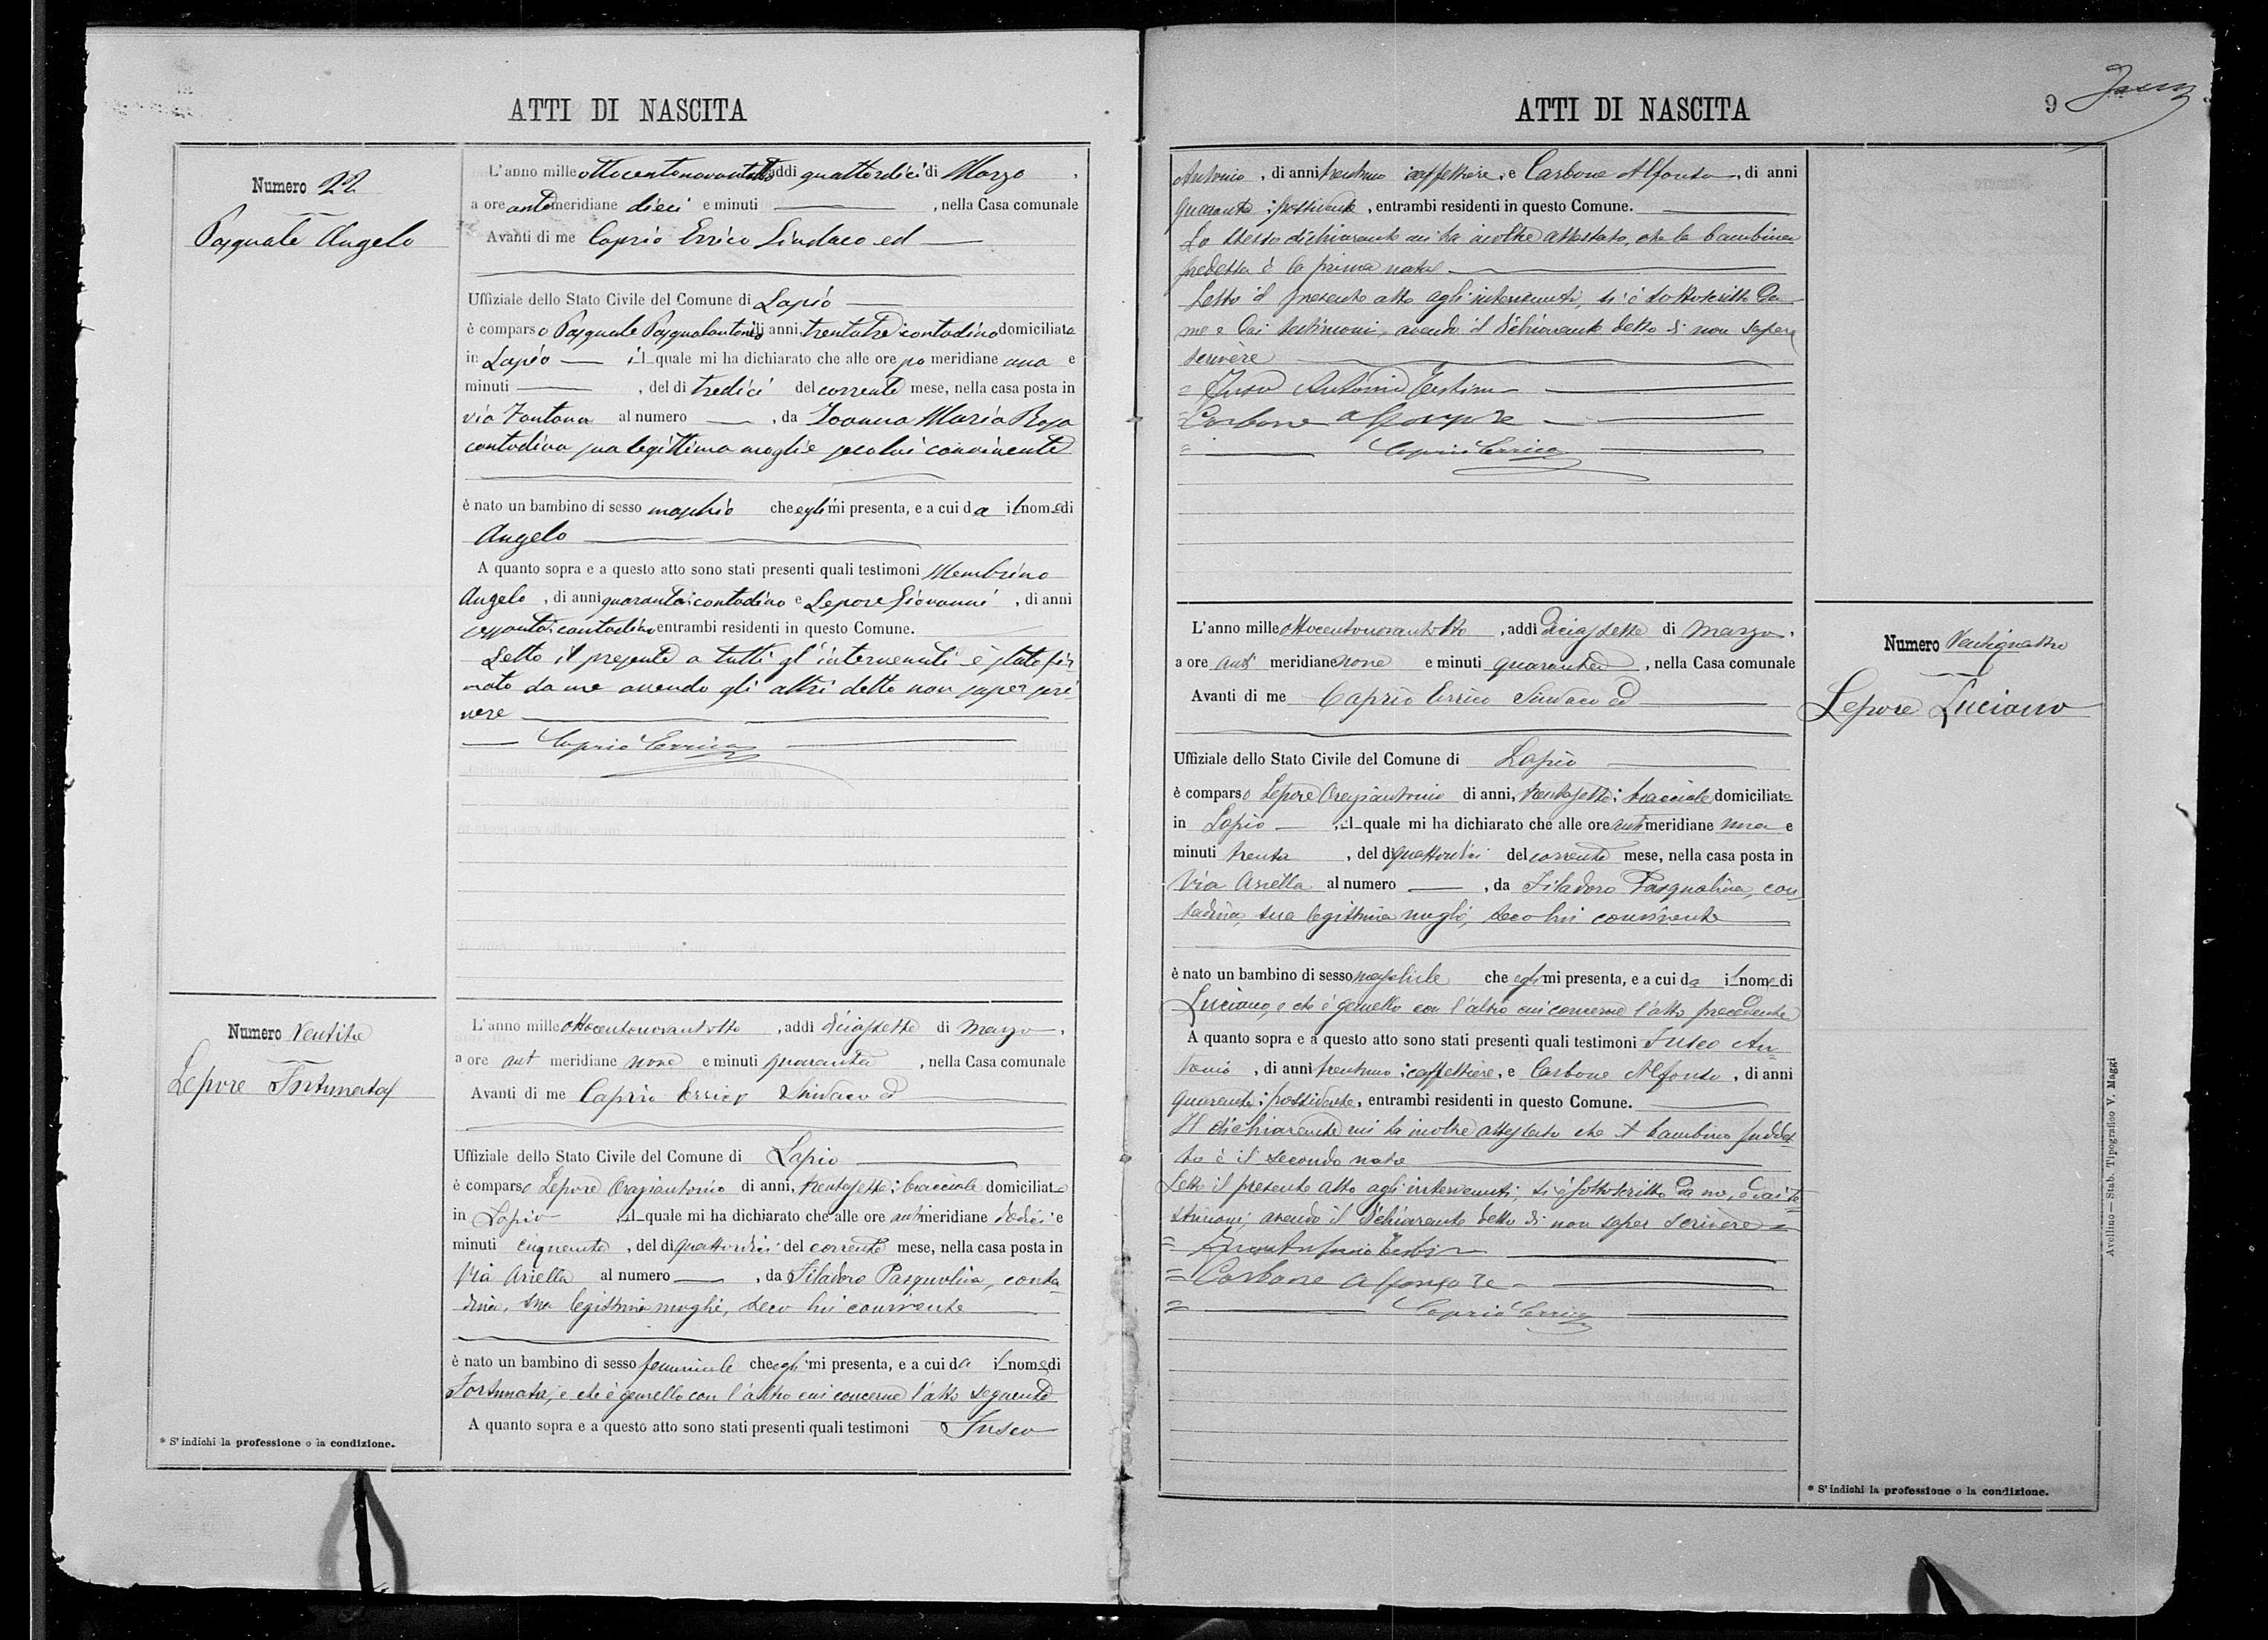 ATTI DI NASCITA
Numero 22
Pasquale Angelo
L'anno mille ottocentonovantotto addì quattordici di Marzo,
a ore antimeridiane dieci e minuti , nella Casa comunale
Avanti di me Caprio Errico Sindaco ed
Uffiziale dello Stato Civile del Comune di Lapio
è comparso Pasquale Pasqualantonio di anni trentatre contadino domiciliato
in Lapio il quale mi ha dichiarato che alle ore po meridiane una e
minuti , del dì tredici del corrente mese, nella casa posta in
via Fontana al numero , da Ioanna Maria Rosa
contadina sua legittima moglie seco lui convivente
è nato un bambino di sesso maschio che egli mi presenta, e a cui da il nome di
Angelo
A quanto sopra e a questo atto sono stati presenti quali testimoni Membrino
Angelo, di anni quaranta contadino e Lepore Giovanni, di anni
sessanta contadino entrambi residenti in questo Comune.
Letto il presente a tutti gl'intervenuti è stato fir
mato da me avendo gli altri detto non saper scri
vere
Caprio Errico
Numero Ventitre
Lepore Fortunata
L'anno mille ottocentonovantotto, addì diciassette di marzo,
a ore ant meridiane nove e minuti quaranta, nella Casa comunale
Avanti di me Caprio Errico Sindaco ed
Uffiziale dello Stato Civile del Comune di Lapio
è comparso Lepore Oraziantonio di anni, trentasette; bracciale domiciliato
in Lapio, il quale mi ha dichiarato che alle ore antimeridiane dodici e
minuti cinquanta, del dì quattordici del corrente mese, nella casa posta in
Via Ariella al numero , da Filadoro Pasqualina, conta
dina, sua legittima moglie, seco lui convivente
è nato un bambino di sesso femminile che egli mi presenta, e a cui da il nome di
Fortunata, e che è gemello con l'altro cui concerne l'atto seguente
A quanto sopra e a questo atto sono stati presenti quali testimoni Fusco
* S'indichi la professione o la condizione.
ATTI DI NASCITA
9
Antonio, di anni trentuno caffettiere, e Carbone Alfonso, di anni
quaranta; possidente, entrambi residenti in questo Comune.
Lo stesso dichiarante mi ha inoltre attestato, che la bambina
predetta è la prima nata
Letto il presente atto agli intervenuti, si è sottoscritto da
me e dai testimoni, avendo il dichiarante detto di non sapere
scrivere
= Fusco Antonio Testim
= Carbone Alfonso Te
= Caprio Errico
L'anno mille ottocentonovantotto, addì diciassette di marzo,
a ore anti meridiane nove e minuti quaranta, nella Casa comunale
Avanti di me Caprio Errico Sindaco ed
Uffiziale dello Stato Civile del Comune di Lapio
è comparso Lepore Oraziantonio di anni, trentasette; bracciale domiciliato
in Lapio, il quale mi ha dichiarato che alle ore antimeridiane una e
minuti trenta, del dì quattordici del corrente mese, nella casa posta in
Via Ariella al numero , da Filadoro Pasqualina, con
tadina, sua legittima moglie, seco lui convivente
è nato un bambino di sesso maschile che egli mi presenta, e a cui da il nome di
Luciano, e che è gemello con l'altro cui concerne l'atto precedente
A quanto sopra e a questo atto sono stati presenti quali testimoni Fusco An=
tonio, di anni trentuno; caffettiere, e Carbone Alfonso, di anni
quaranta; possidente, entrambi residenti in questo Comune.
Il dichiarante mi ha inoltre attestato che il bambino suddet
to è il secondo nato
Letto il presente atto agli intervenuti, si è sottoscritto da me, e dai te=
stimoni, avendo il dichiarante detto di non saper scrivere =
= Fusco Antonio Testim
= Carbone Alfonso Te
= Caprio Errico
Numero Ventiquattro
Lepore Luciano
* S'indichi la professione o la condizione.
Avellino — Stab. Tipografico V. Maggi